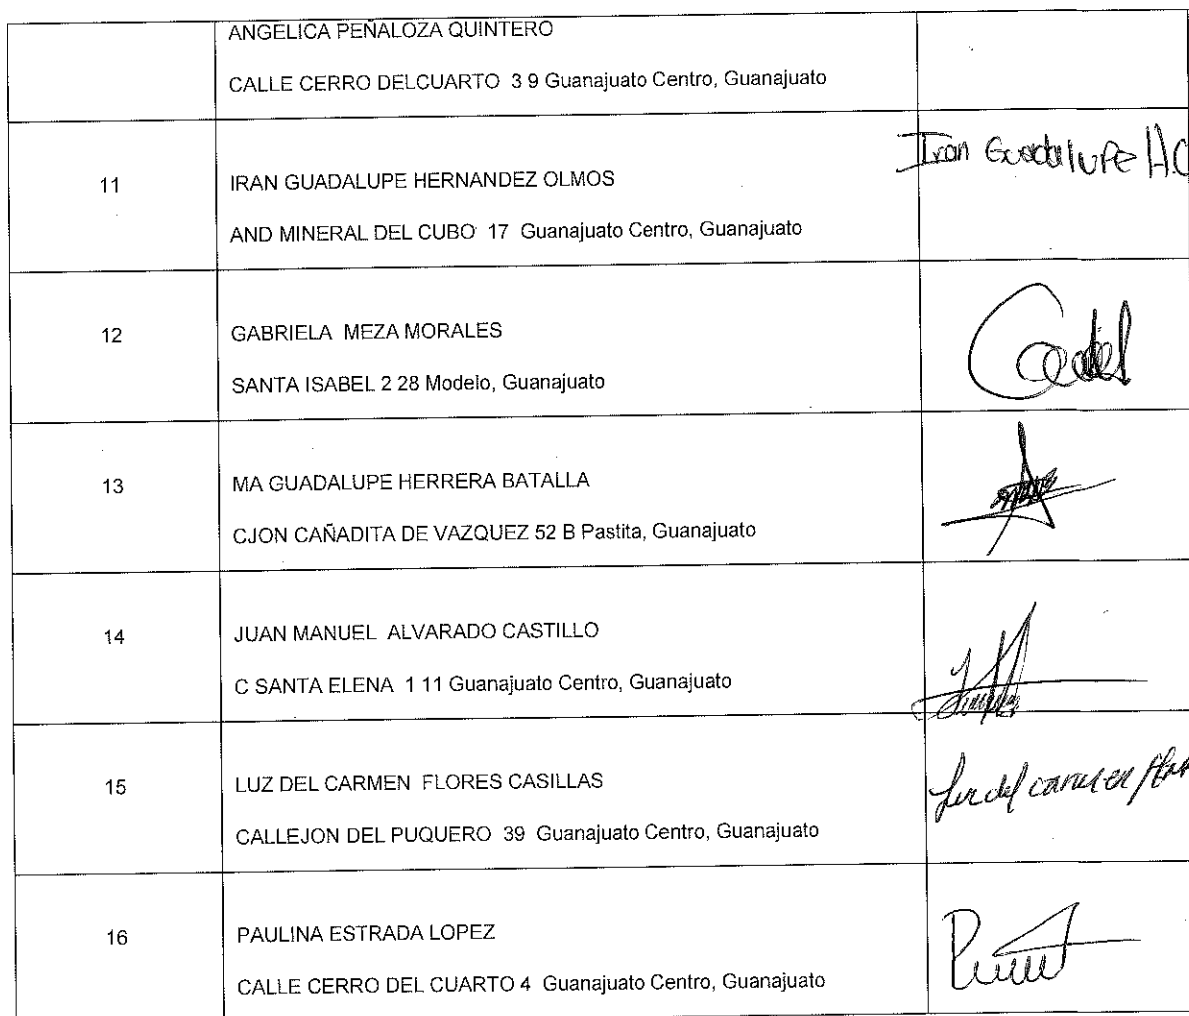 ANGELICA PEÑALOZA QUINTERO
CALLE CERRO DELCUARTO 3 9 Guanajuato Centro, Guanajuato
11
IRAN GUADALUPE HERNANDEZ OLMOS
AND MINERAL DEL CUBO 17 Guanajuato Centro, Guanajuato
Iran Guadalupe H.O
12
GABRIELA MEZA MORALES
SANTA ISABEL 2 28 Modelo, Guanajuato
13
MA GUADALUPE HERRERA BATALLA
CJON CAÑADITA DE VAZQUEZ 52 B Pastita, Guanajuato
14
JUAN MANUEL ALVARADO CASTILLO
C SANTA ELENA 1 11 Guanajuato Centro, Guanajuato
15
LUZ DEL CARMEN FLORES CASILLAS
CALLEJON DEL PUQUERO 39 Guanajuato Centro, Guanajuato
Luz del carmen
16
PAULINA ESTRADA LOPEZ
CALLE CERRO DEL CUARTO 4 Guanajuato Centro, Guanajuato